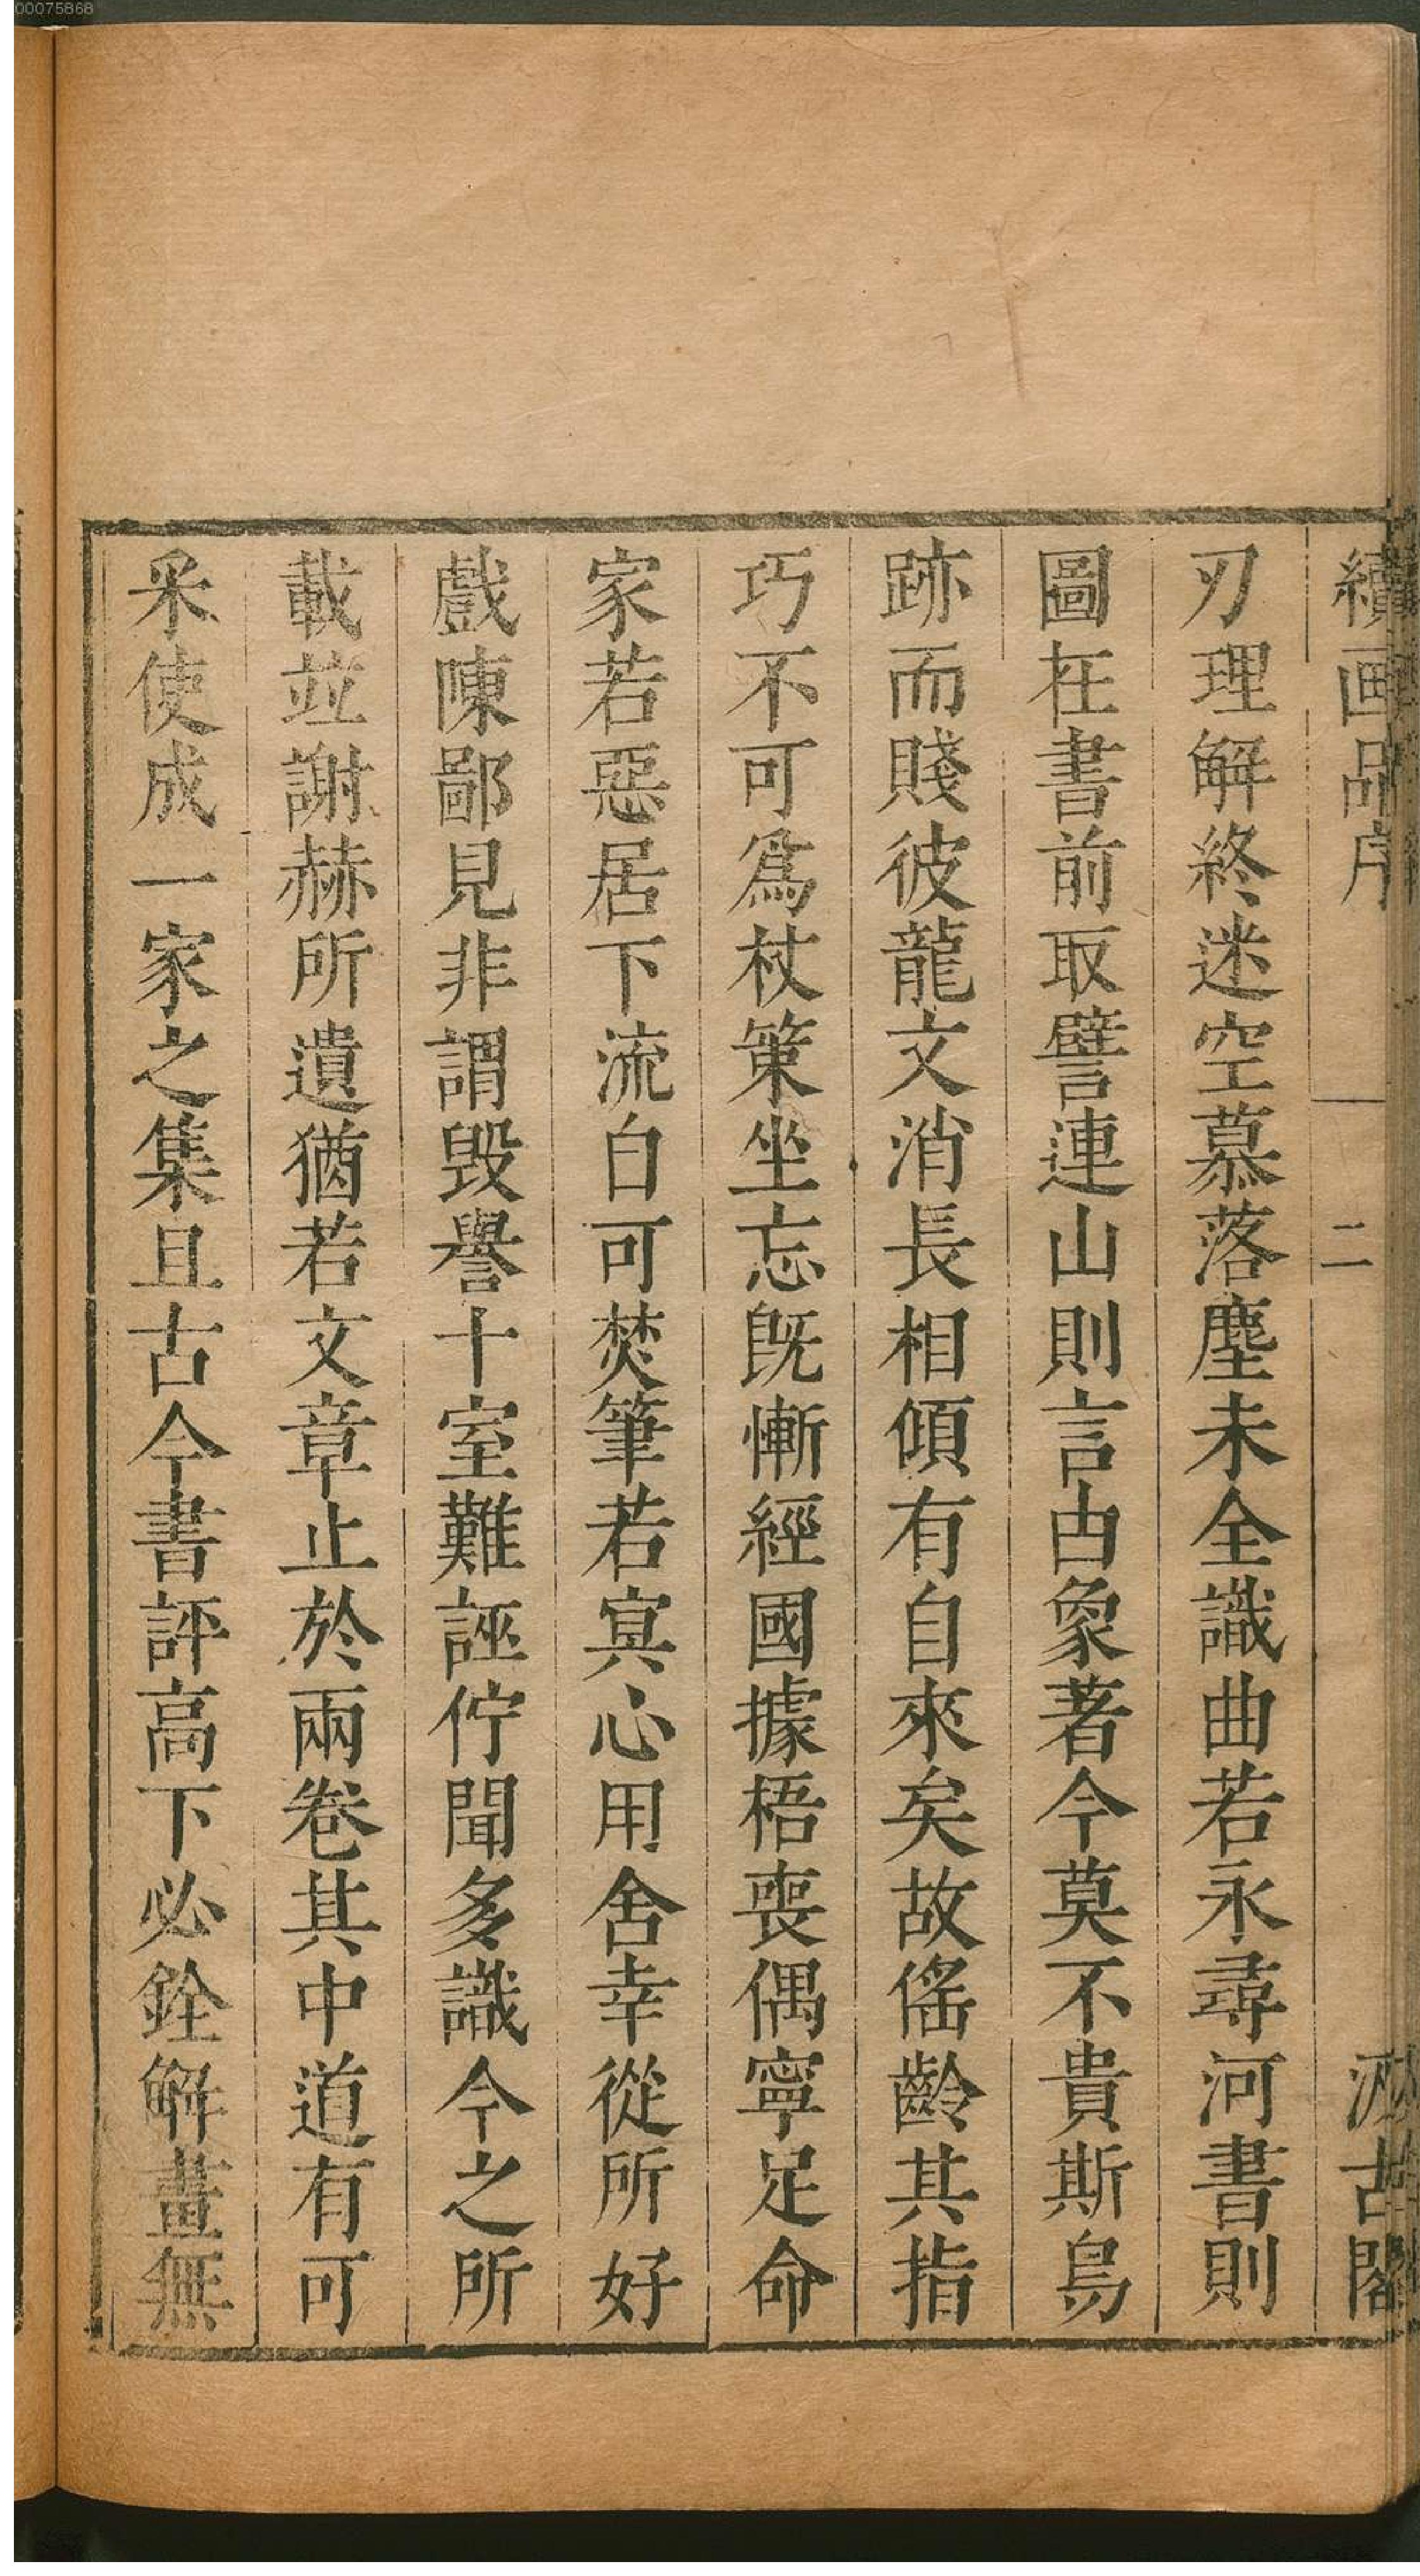 00075868
續画品序 二 汲古閣
刃理解終迷空慕落塵未全識曲若永尋河書則
圖在書前取譬連山則言由象著今莫不貴斯鳥
跡而賤彼龍文消長相傾有自來矣故傜齡其指
巧不可爲杖策坐忘旣慚經國據梧喪偶寧足命
家若惡居下流自可焚筆若寘心用舍幸從所好
戲陳鄙見非謂毀譽十室難誣佇聞多識今之所
載並謝赫所遺猶若文章止於兩卷其中道有可
釆使成一家之集且古今書評高下必銓解畫無